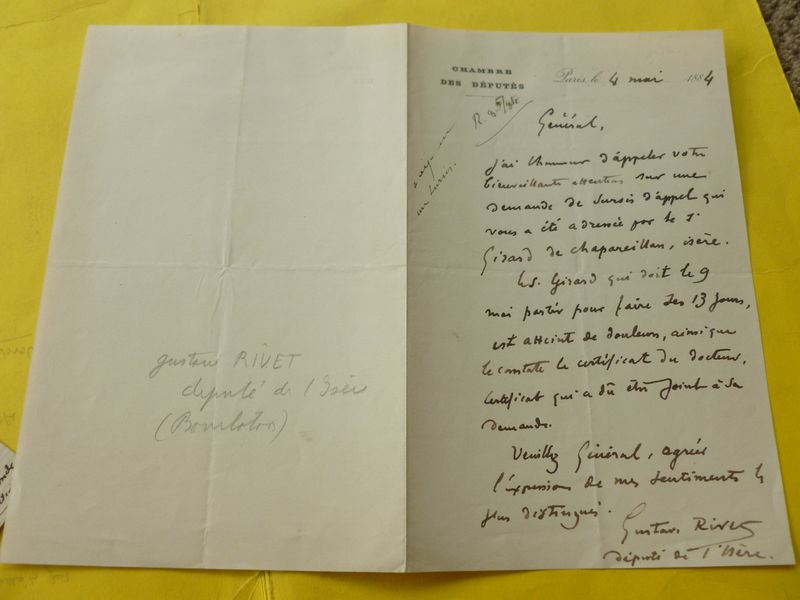 gustave RIVET
député de l'Isère
CHAMBRE
DES DÉPUTÉS
Paris, le 4 mai 1884
Général,
j'ai l'honneur d'appeler votre
bienveillante attention sur une
demande de sursis d'appel qui
vous a été adressée par le Sr
Girard de chapareillan, isère.
Le S. Girard qui doit le 9
mai partir pour faire ses 13 jours,
est atteint de douleurs, ainsi que
le constate le certificat du docteur,
certificat qui a dû être joint à sa
demande.
Veuillez Général, agréer
l'expression de mes sentiments les
plus distingués.
Gustave Rivet
député de l'Isère.